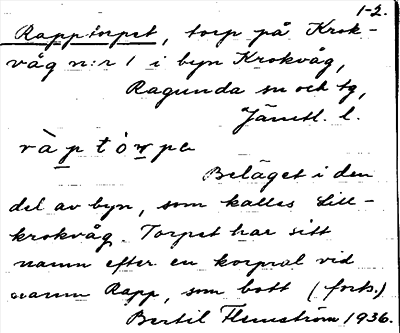 1-2.
Rapptorpet, torp på Krok-
våg n:r 1 i byn Krokvåg,
Ragunda sn och tg,
Jämtl. l.
ràptórpa
Beläget i den
del av byn, som kallas Lill-
krokvåg. Torpet har sitt
namn efter en korpral vid
namn Rapp, som bott (forts.)
Bertil Flemström 1936.